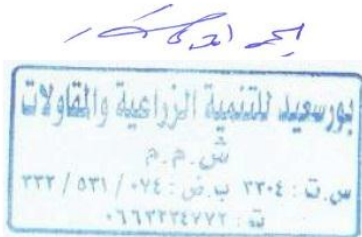 بورسعيد للتنمية الزراعية والمقاولات
ش.م.م
س.ت : ٢٣٠٤ ب.ض : ٠٧٤ / ٥٣١ / ٣٣٣
ت : ٠٦٦٣٢٣٤٧٧٢